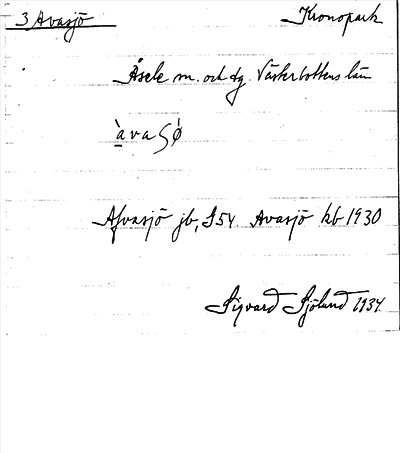 3 Avasjö Kronopark
Åsele sn. och tg. Västerbottens län
àvaʃǿ
Afvasjö jb, S 54. Avasjö kb 1930
Sigvard Sjölund 1934